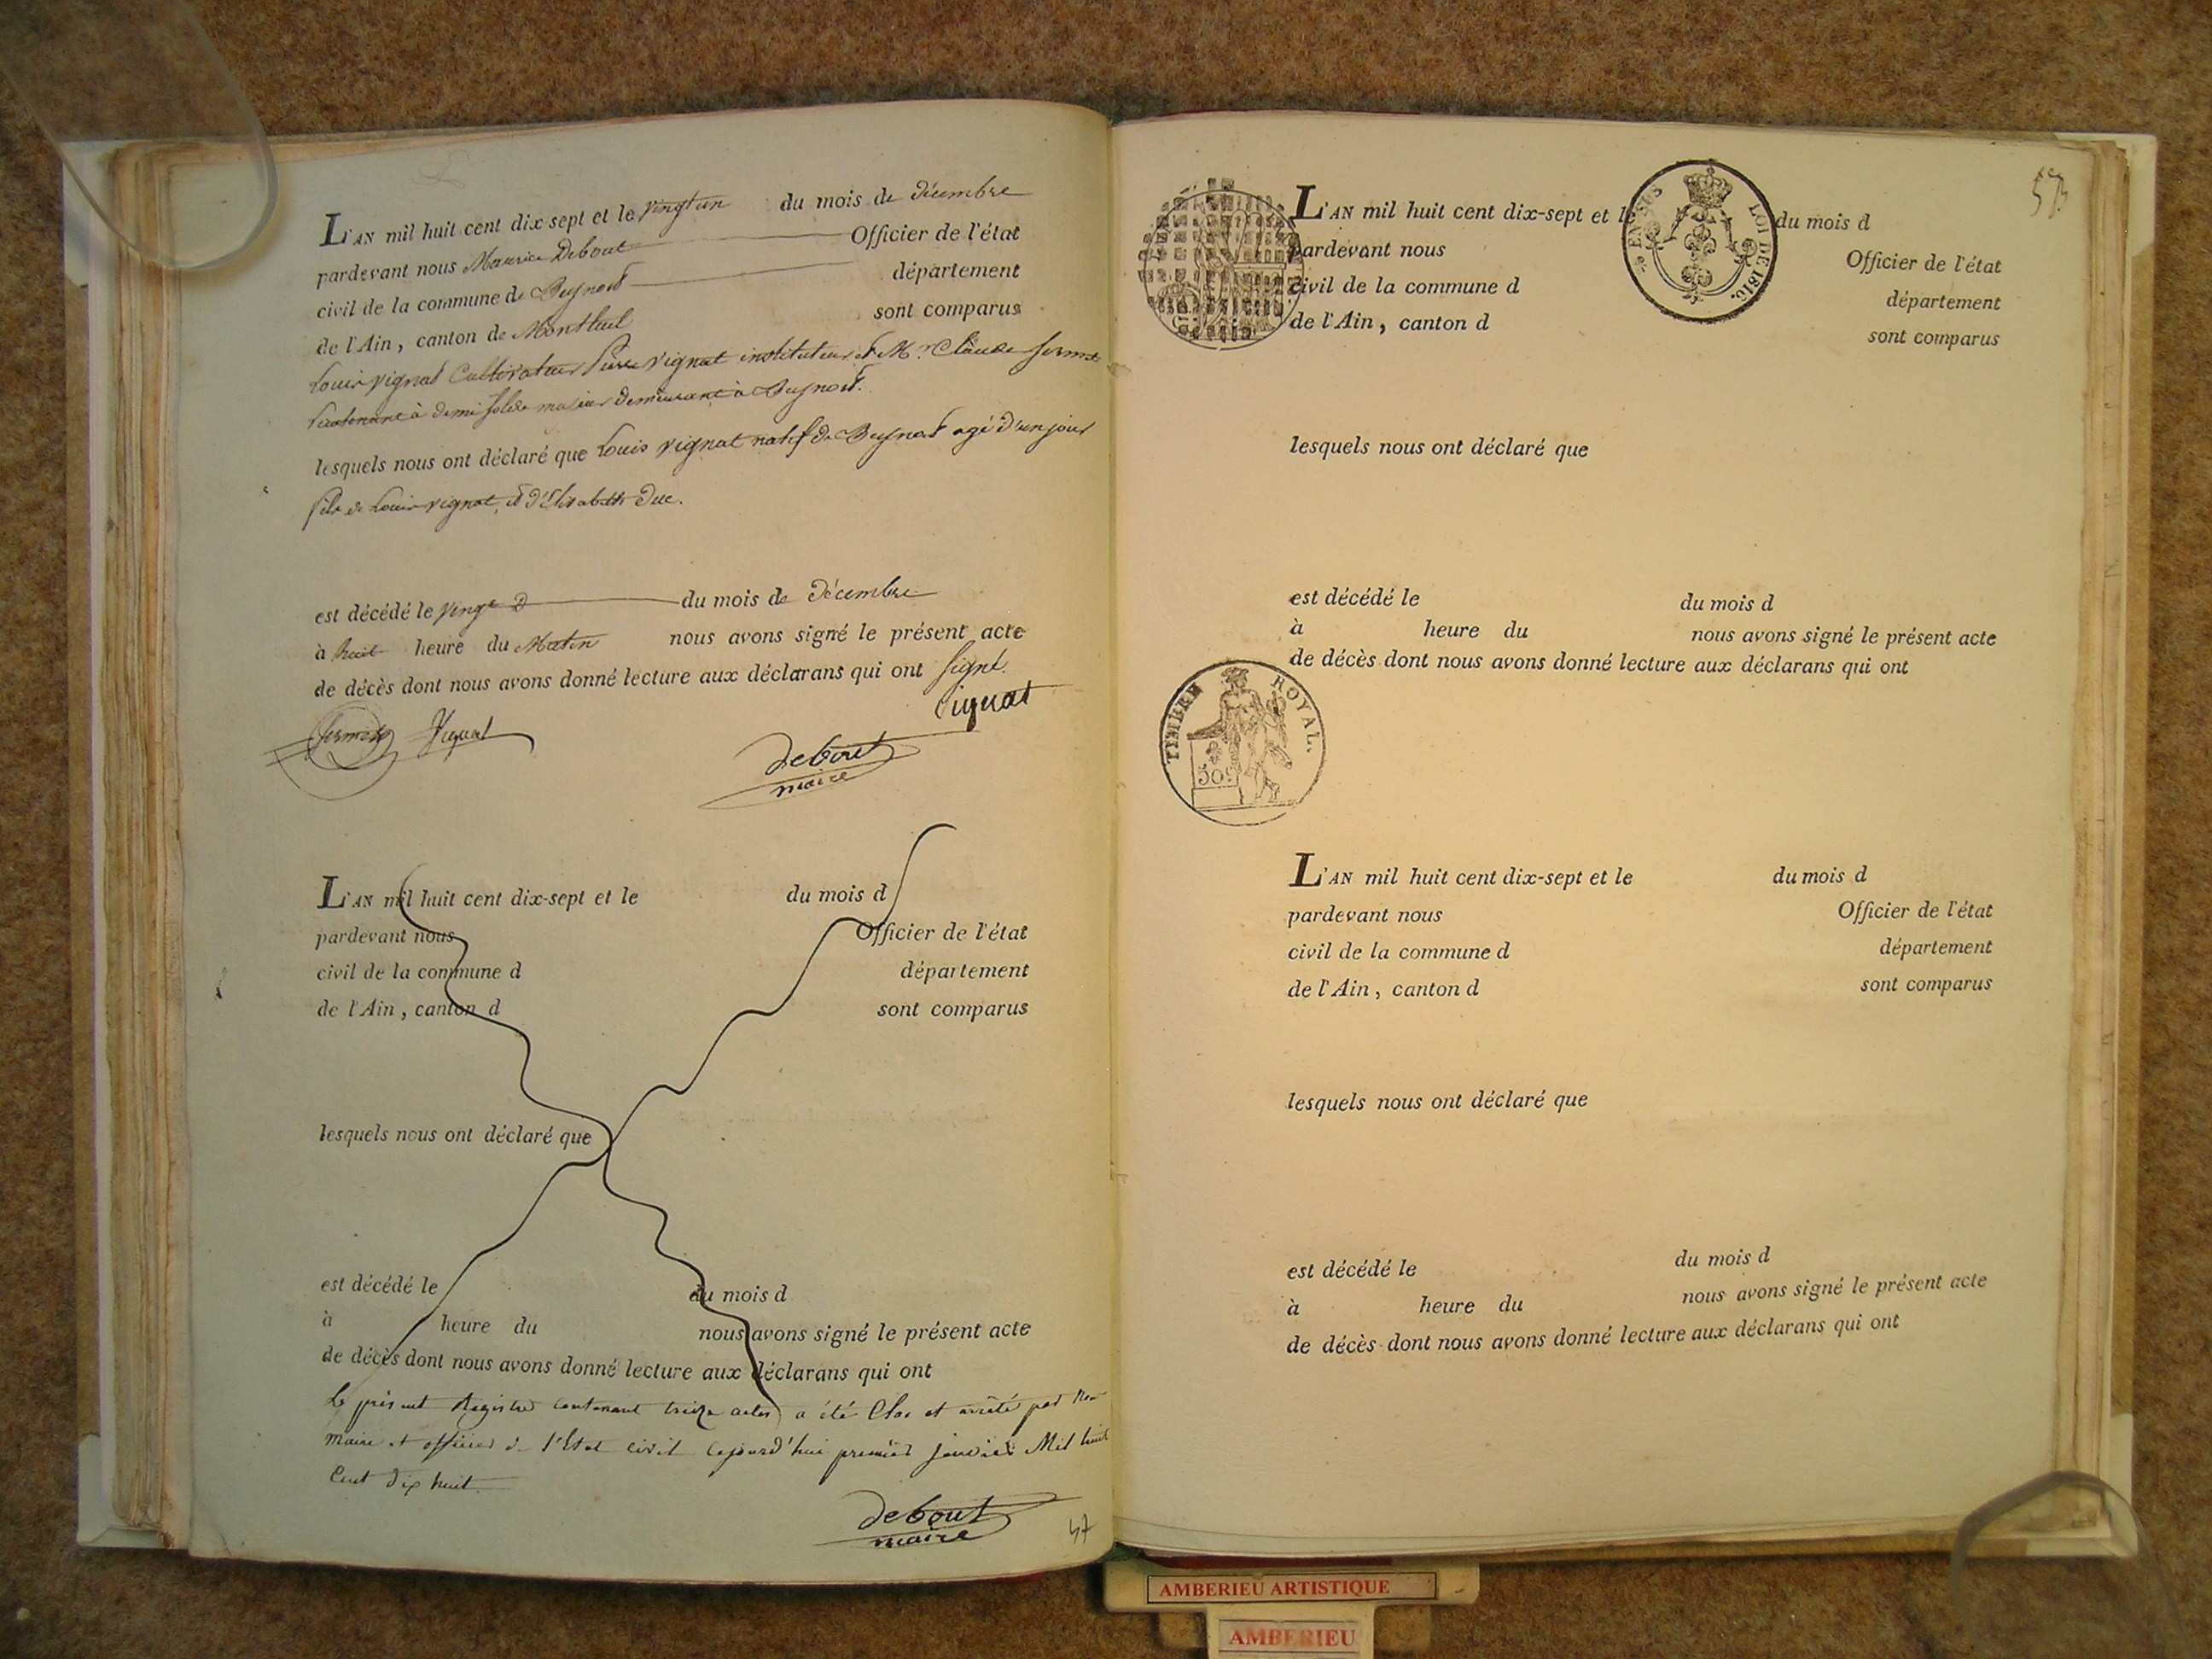 L'AN mil huit cent dix sept et le vingt un du mois de Décembre
pardevant nous Maurice Debout Officier de l'état
civil de la commune de Beynost département
de l'Ain, canton de Montluel sont comparus
Louis Vignat Cultivateur Pierre Vignat instituteur et Mr Claude
Lieutenant à demi solde majeurs demeurant à Beynost.
lesquels nous ont déclaré que Louis Vignat natif de Beynost agé d'un jour
fils de Louis Vignat, et d'Elisabeth Duc.
est décédé le vingt du mois de Décembre
à huit heure du Matin nous avons signé le présent acte
de décès dont nous avons donné lecture aux déclarans qui ont signé.
Vignat
Vignat
debout
maire
L'AN mil huit cent dix-sept et le du mois d
pardevant nous Officier de l'état
civil de la commune d département
de l'Ain, canton d sont comparus
lesquels nous ont déclaré que
est décédé le du mois d
à heure du nous avons signé le présent acte
de décès dont nous avons donné lecture aux déclarans qui ont
Le présent Registre contenant treize actes a été Clos et arrêté par Nous
maire et officier de l'Etat civil cejourd'hui premier janvier Mil huit
Cent dix huit.
debout
maire
57
57
L'AN mil huit cent dix-sept et le du mois d
EN SUS LOI DE 1816.
pardevant nous Officier de l'état
civil de la commune d département
de l'Ain, canton d sont comparus
lesquels nous ont déclaré que
est décédé le du mois d
à heure du nous avons signé le présent acte
de décès dont nous avons donné lecture aux déclarans qui ont
TIMBRE ROYAL.
50c
L'AN mil huit cent dix-sept et le du mois d
pardevant nous Officier de l'état
civil de la commune d département
de l'Ain, canton d sont comparus
lesquels nous ont déclaré que
est décédé le du mois d
à heure du nous avons signé le présent acte
de décès dont nous avons donné lecture aux déclarans qui ont
AMBERIEU ARTISTIQUE
AMBERIEU